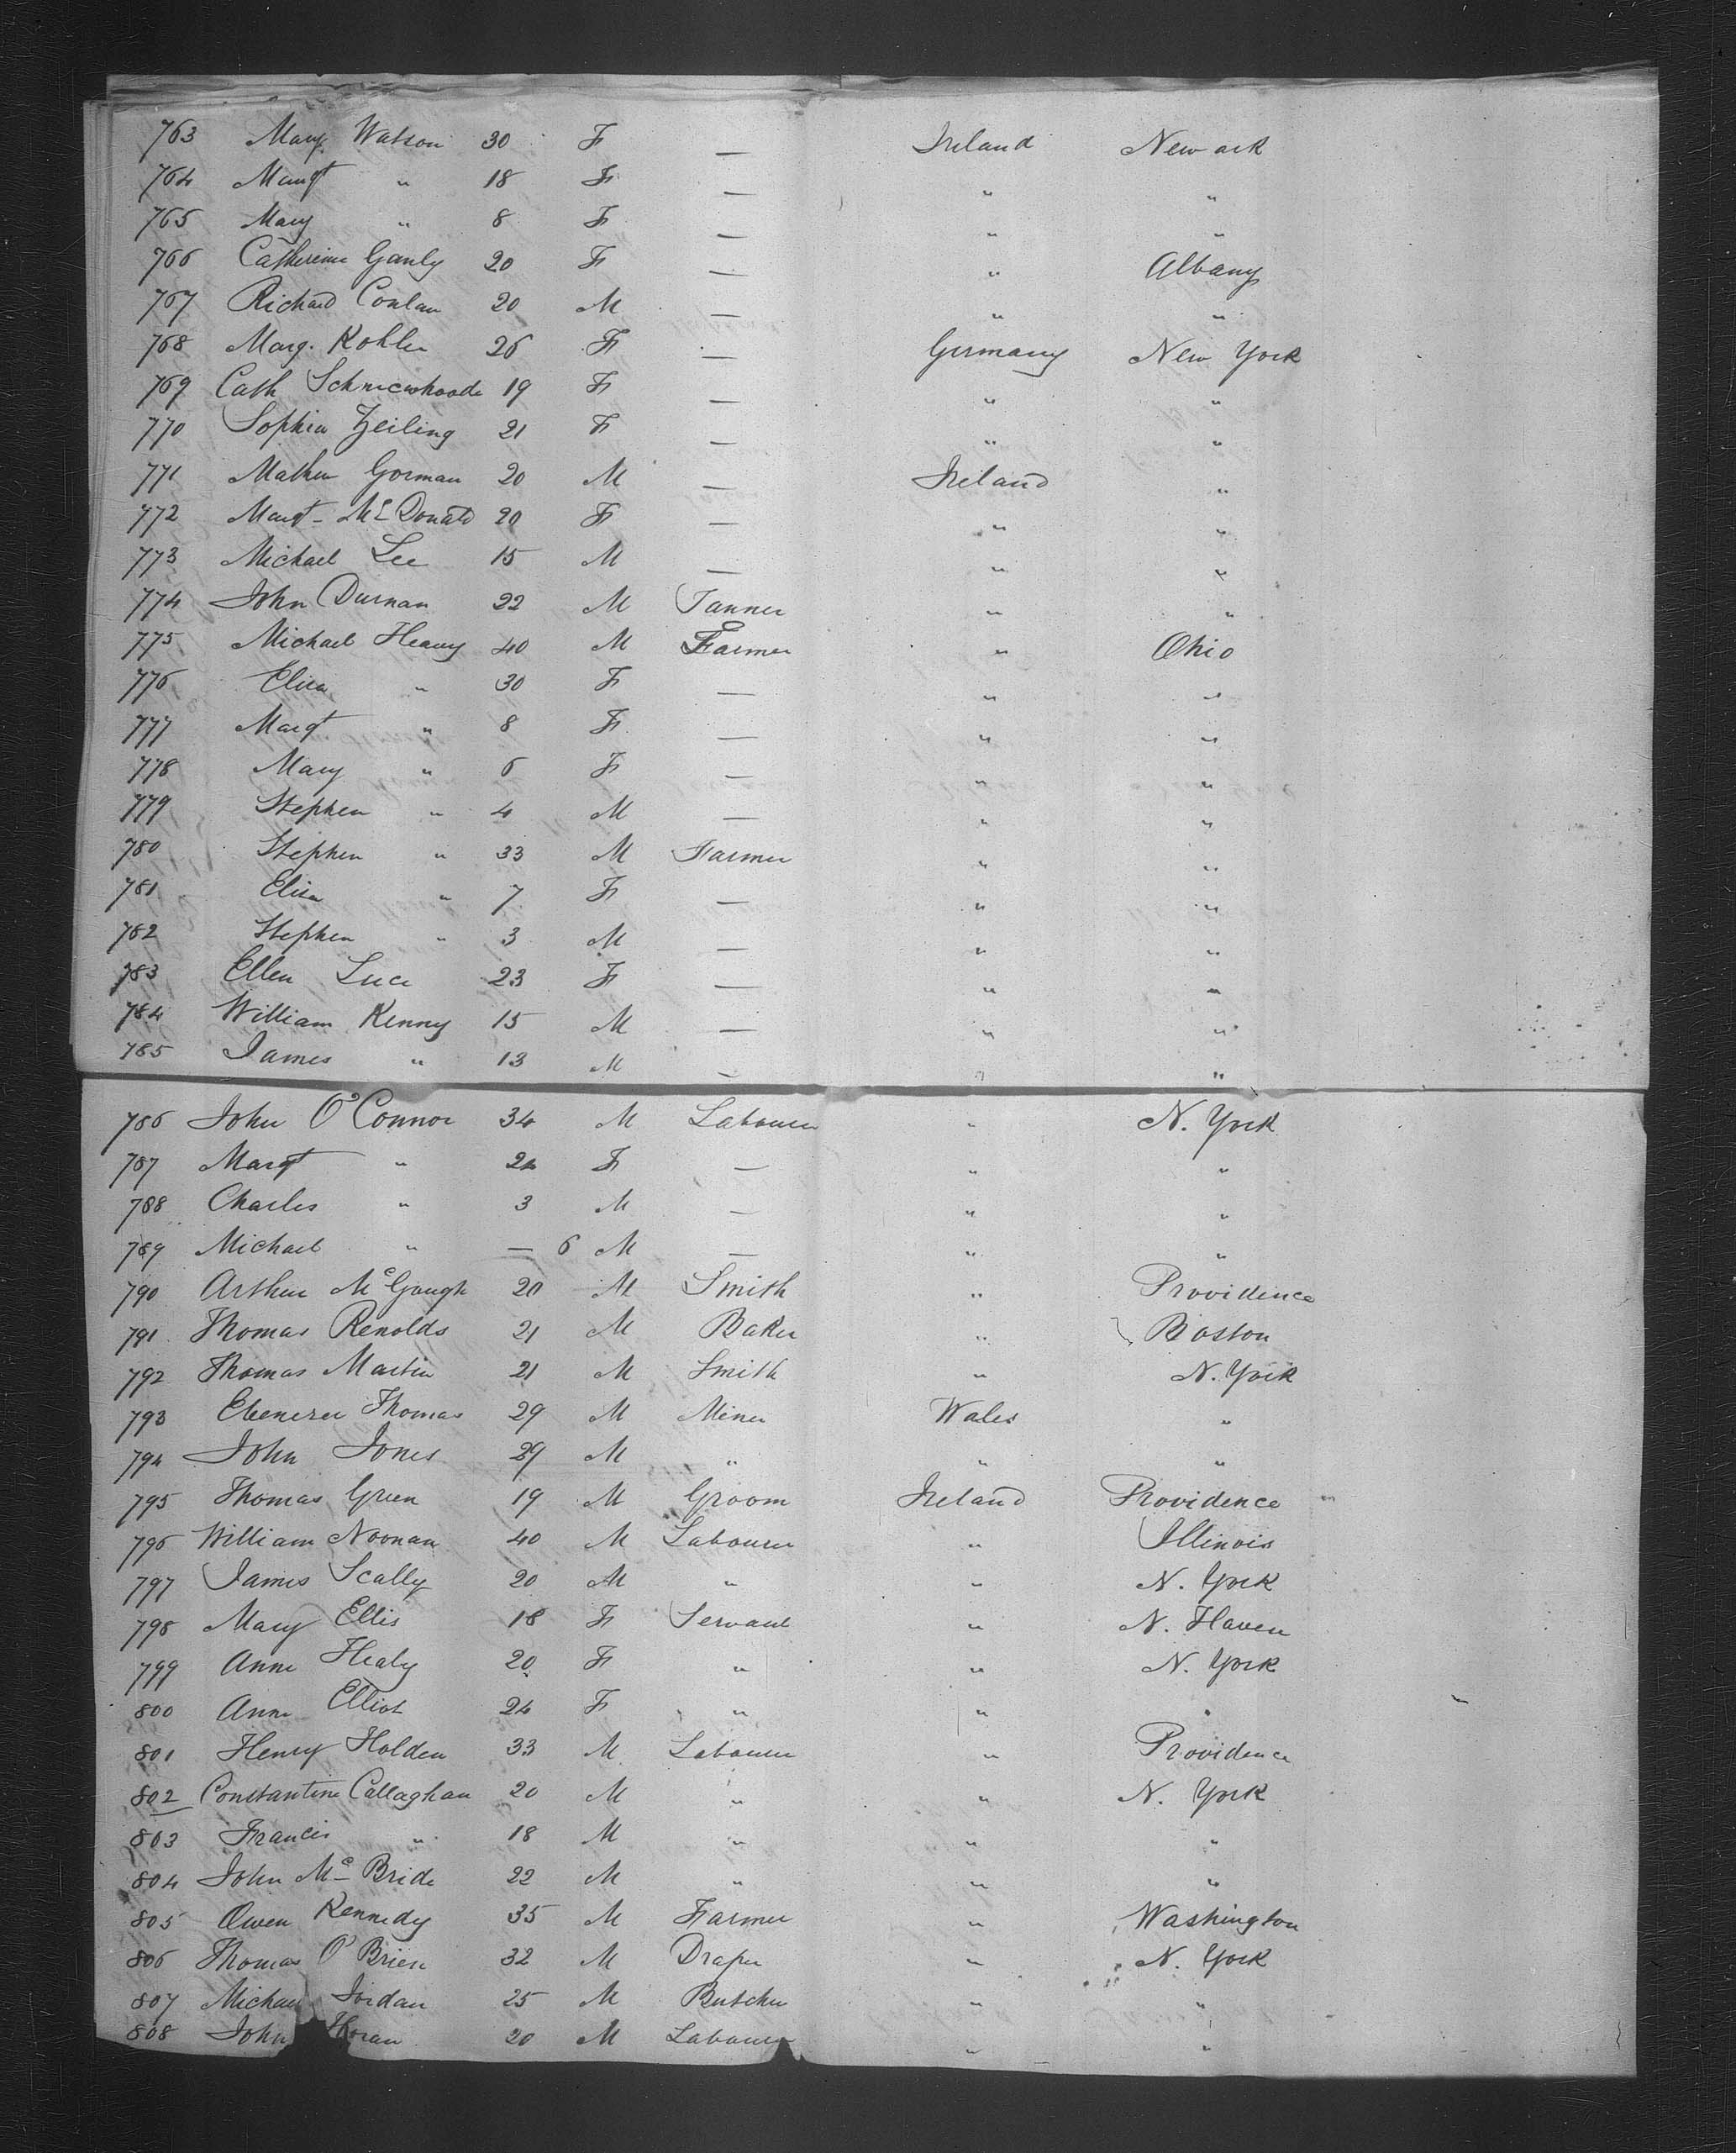 763 Mary Watson 30 F — Ireland Newark
764 Margt " 18 F — " "
765 Mary " 8 F — " "
766 Catherine Ganly 20 F — " Albany
767 Richard Conlan 20 M — " "
768 Marg. Kohler 26 F — Germany New York
769 Cath 19 F — " "
770 Sophia Zeiling 21 F — " "
771 Mathew Gorman 20 M — Ireland "
772 Margt McDonald 20 F — " "
773 Michael Lee 15 M — " "
774 John Durnan 22 M Tanner " "
775 Michael Heavy 40 M Farmer " Ohio
776 Eliza " 30 F — " "
777 Margt " 8 F — " "
778 Mary " 6 F — " "
779 Stephen " 4 M — " "
780 Stephen " 33 M Farmer " "
781 Eliza " 7 F — " "
782 Stephen " 3 M — " "
783 Ellen Luce 23 F — " "
784 William Kenny 15 M — " "
785 James " 13 M — " "
786 John O'Connor 34 M Labourer " N. York
787 Margt " 24 F — " "
788 Charles " 3 M — " "
789 Michael " — 6 M — " "
790 Arthur McGough 20 M Smith " Providence
791 Thomas Renolds 21 M Baker " Boston
792 Thomas Martin 21 M Smith " N. York
793 Ebenezer Thomas 29 M Miner Wales "
794 John Jones 29 M " " "
795 Thomas Green 19 M Groom Ireland Providence
796 William Noonan 40 M Labourer " Illinois
797 James Scally 20 M " " N. York
798 Mary Ellis 18 F Servant " N. Haven
799 Anne Healy 20 F " " N. York
800 Anne Elliot 24 F " " "
801 Henry Holden 33 M Labourer " Providence
802 Constantine Callaghan 20 M " " N. York
803 Francis " 18 M " " "
804 John McBride 22 M " " "
805 Owen Kennedy 35 M Farmer " Washington
806 Thomas O'Brien 32 M Draper " N. York
807 Michael Jordan 25 M Butcher " "
808 John 20 M Labourer " "